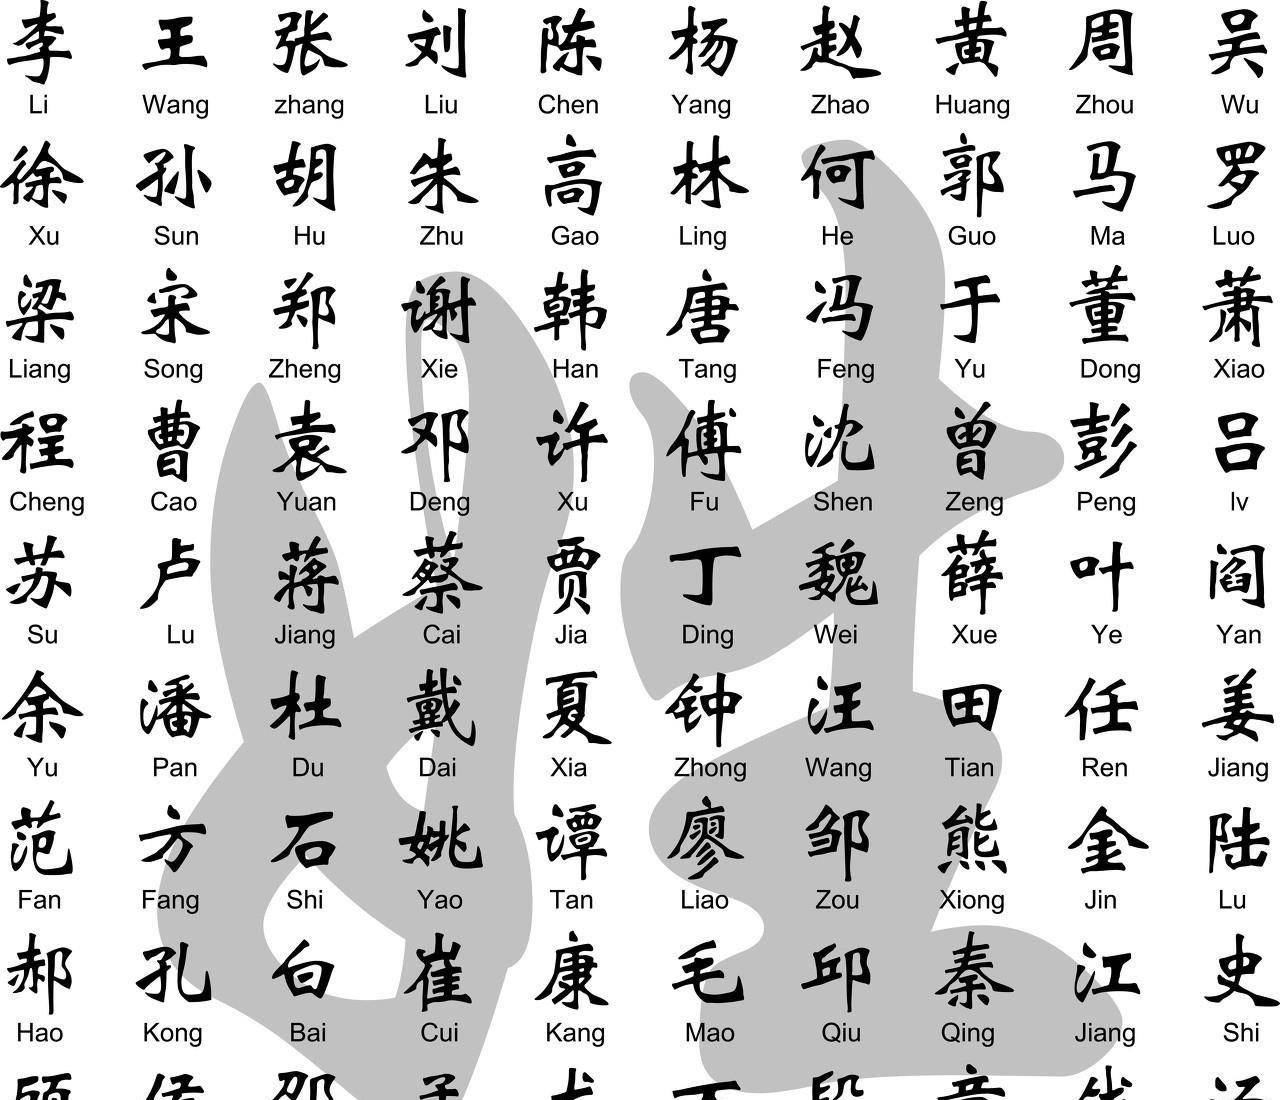 李 王 张 刘 陈 杨 赵 黄 周 吴
Li Wang zhang Liu Chen Yang Zhao Huang Zhou Wu
徐 孙 胡 朱 高 林 何 郭 马 罗
Xu Sun Hu Zhu Gao Ling He Guo Ma Luo
梁 宋 郑 谢 韩 唐 冯 于 董 萧
Liang Song Zheng Xie Han Tang Feng Yu Dong Xiao
程 曹 袁 邓 许 傅 沈 曾 彭 吕
Cheng Cao Yuan Deng Xu Fu Shen Zeng Peng lv
苏 卢 蒋 蔡 贾 丁 魏 薛 叶 阎
Su Lu Jiang Cai Jia Ding Wei Xue Ye Yan
余 潘 杜 戴 夏 钟 汪 田 任 姜
Yu Pan Du Dai Xia Zhong Wang Tian Ren Jiang
范 方 石 姚 谭 廖 邹 熊 金 陆
Fan Fang Shi Yao Tan Liao Zou Xiong Jin Lu
郝 孔 白 崔 康 毛 邱 秦 江 史
Hao Kong Bai Cui Kang Mao Qiu Qing Jiang Shi